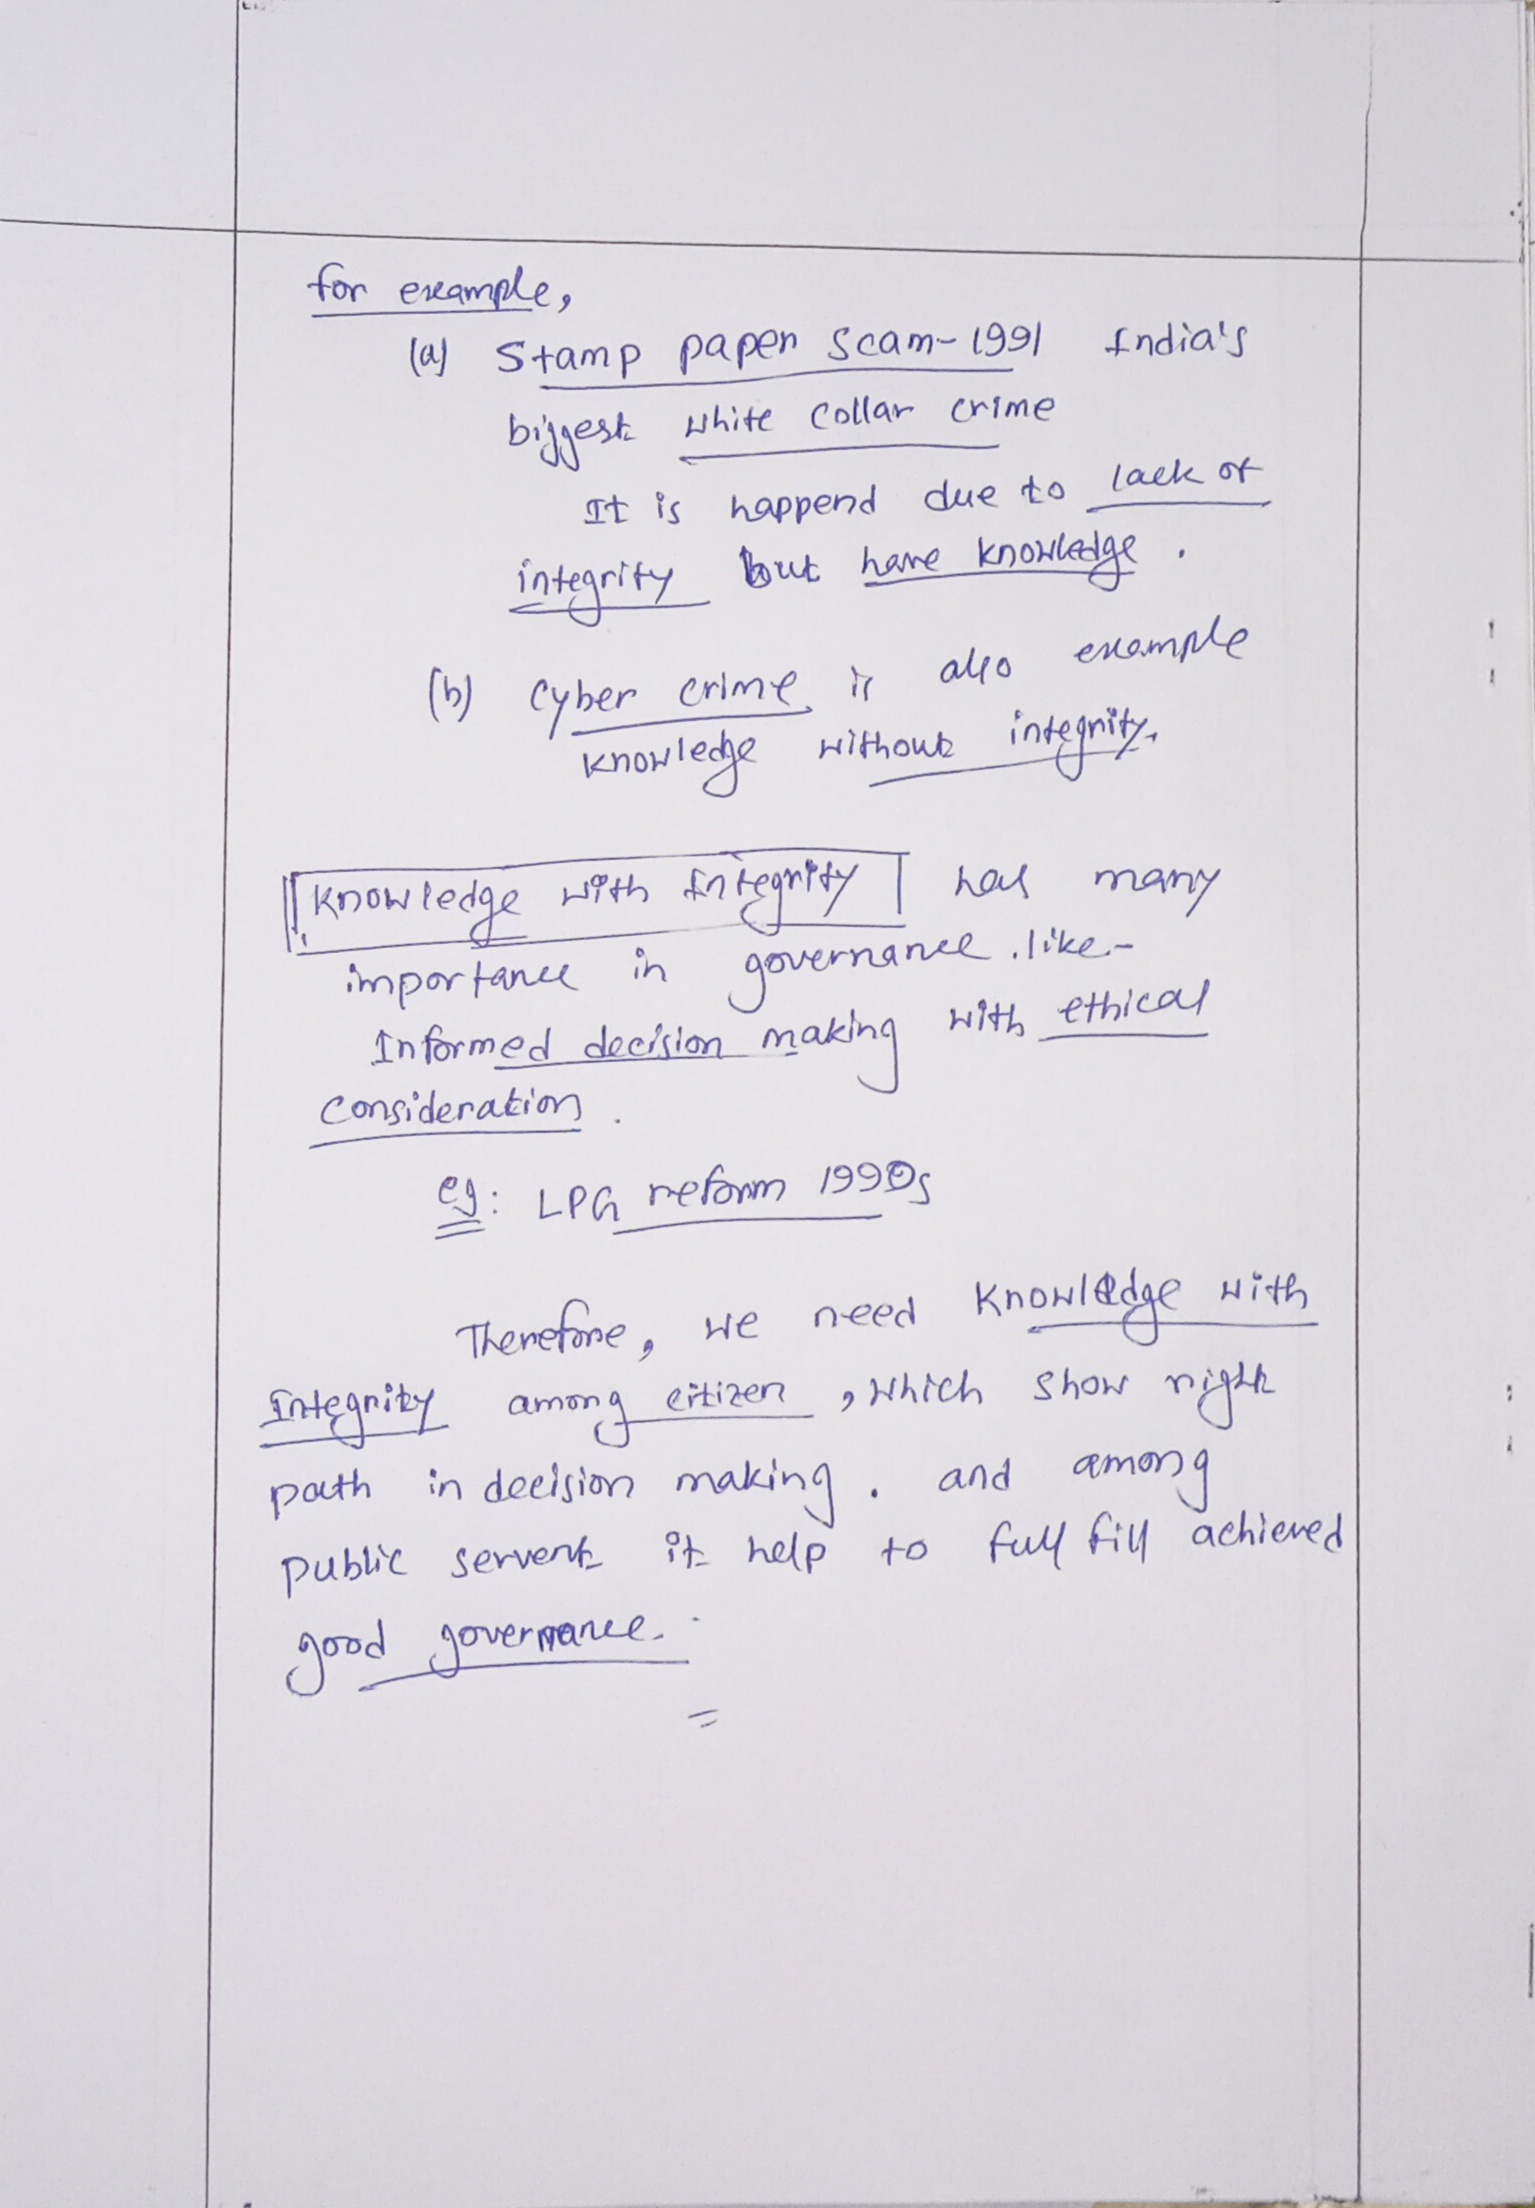 for example,
(a) Stamp paper scam-1991 India's
biggest white collar crime
It is happend due to lack of
integrity but have knowledge.
(b) Cyber crime is also example
knowledge without integrity.
Knowledge with Integrity has many
importance in governance. like-
Informed decision making with ethical
consideration.
eg: LPG reform 1990s
Therefore, we need knowledge with
Integrity among citizen, which show right
path in decision making. and among
public servent it help to full fill achieved
good governance.